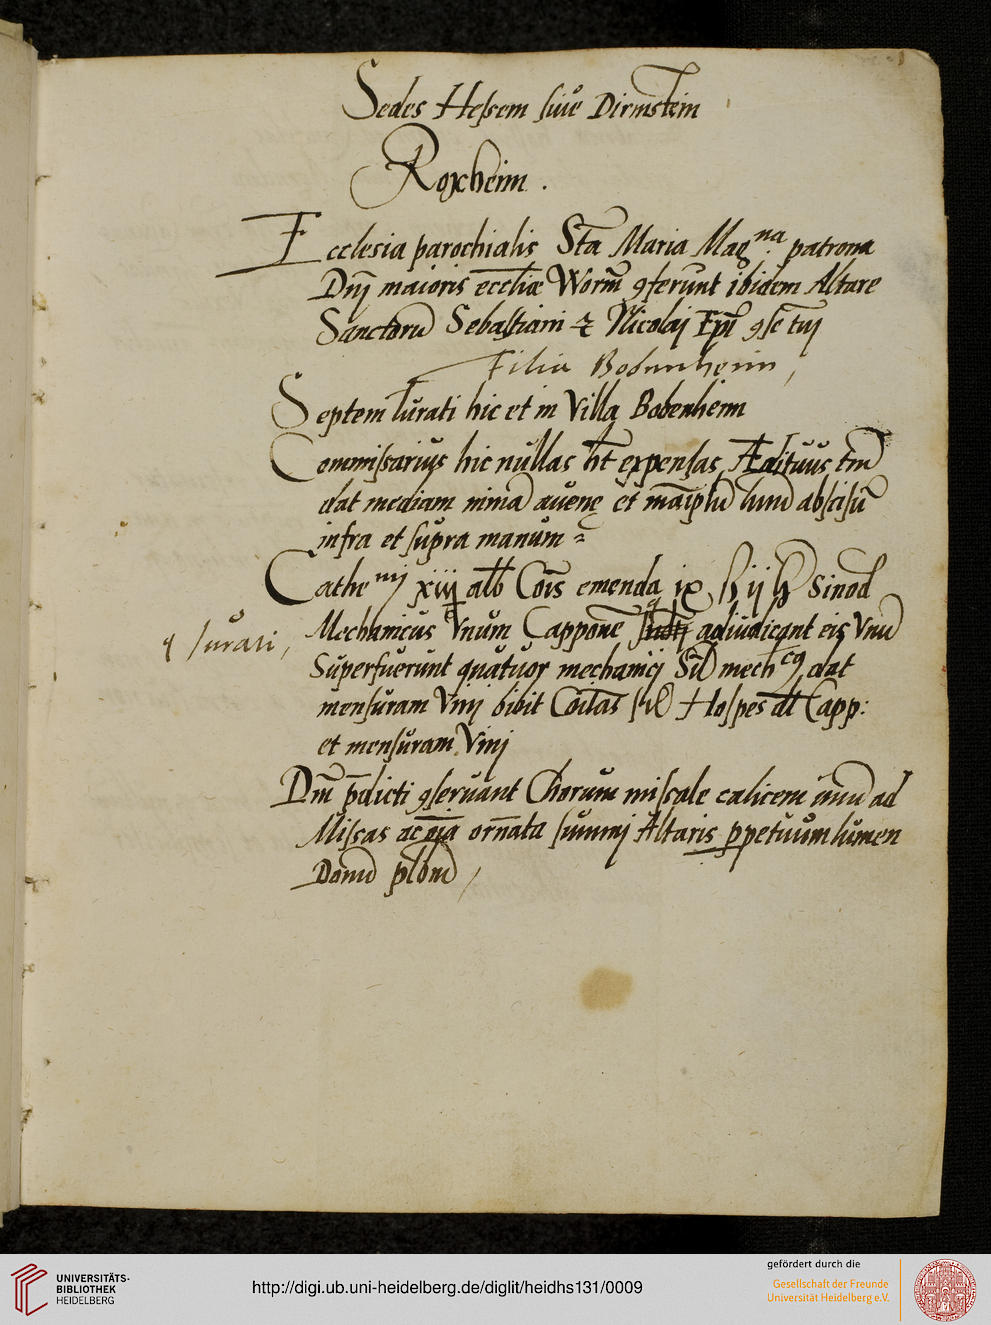 Sedes Hessem siue Dirmstein
Roxheim .
Ecclesia parochialis Sta Maria Mag.na patrona
Dnj maioris eccliæ Worm 9ferunt ibidem Altare
Sanctoru Sebastiani et Nicolaj Epi
Filia Bobenheim,
Septem Iurati hic et in Villa Bobenheim
Commissarius hic nullas ht expensas, Ædituus tm
dat mediam avenę et lunu abscisu
infra et supra manum
Cathenuj xiiij alb Cois emenda ix ß ij Sinod
Mechanicus Vnum Cappone adiudicant eis Vnu
4 Jurati,
Superfuerunt quatuor mechanicj Sil dat
mensuram Vinj bibit Coitas Hospes dt Capp:
et mensuram Vinj
Dni pdicti 9seruant Chorum missale calicem unu ad
Missas ac oia ornata summj Altaris ppetuum lumen
Domu plbni,
UNIVERSITÄTS-
BIBLIOTHEK
HEIDELBERG
http://digi.ub.uni-heidelberg.de/diglit/heidhs131/0009
gefördert durch die
Gesellschaft der Freunde
Universität Heidelberg e.V.